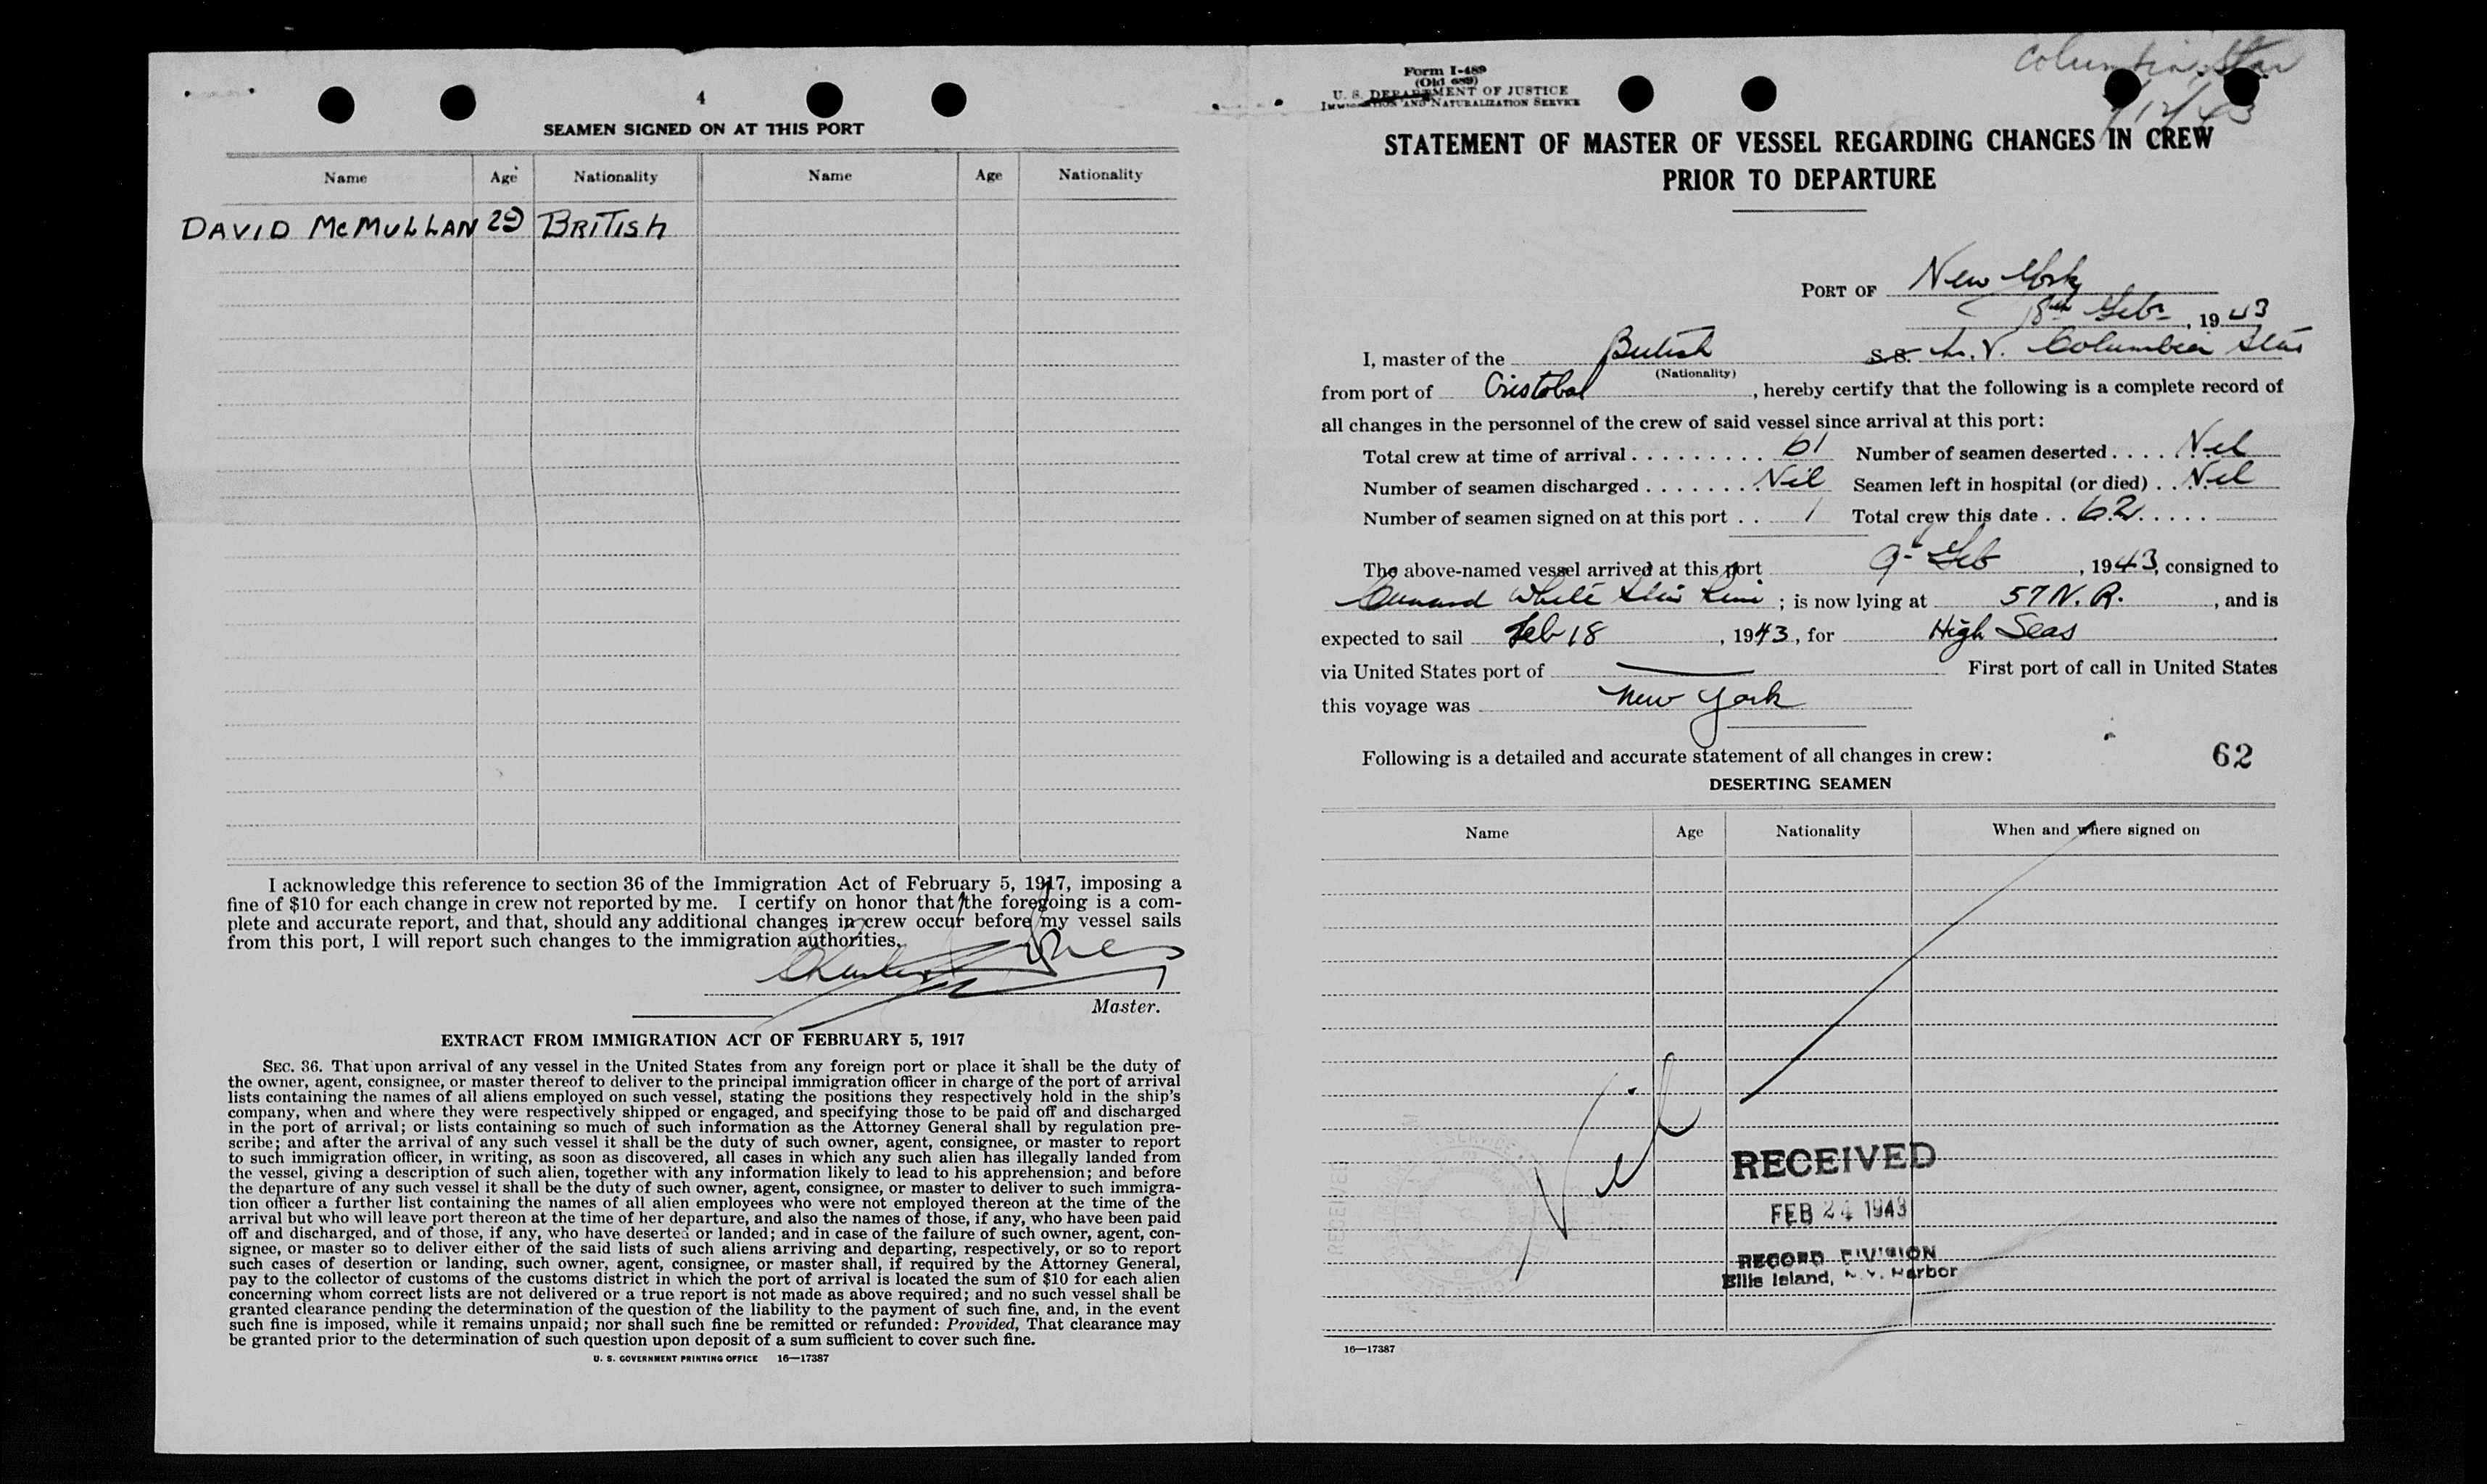 4
SEAMEN SIGNED ON AT THIS PORT
Name Age Nationality Name Age Nationality
DAVID McMULLAN 29 BRITISH
I acknowledge this reference to section 36 of the Immigration Act of February 5, 1917, imposing a
fine of $10 for each change in crew not reported by me. I certify on honor that the foregoing is a com-
plete and accurate report, and that, should any additional changes in crew occur before my vessel sails
from this port, I will report such changes to the immigration authorities.
Charles
Master.
EXTRACT FROM IMMIGRATION ACT OF FEBRUARY 5, 1917
SEC. 36. That upon arrival of any vessel in the United States from any foreign port or place it shall be the duty of
the owner, agent, consignee, or master thereof to deliver to the principal immigration officer in charge of the port of arrival
lists containing the names of all aliens employed on such vessel, stating the positions they respectively hold in the ship's
company, when and where they were respectively shipped or engaged, and specifying those to be paid off and discharged
in the port of arrival; or lists containing so much of such information as the Attorney General shall by regulation pre-
scribe; and after the arrival of any such vessel it shall be the duty of such owner, agent, consignee, or master to report
to such immigration officer, in writing, as soon as discovered, all cases in which any such alien has illegally landed from
the vessel, giving a description of such alien, together with any information likely to lead to his apprehension; and before
the departure of any such vessel it shall be the duty of such owner, agent, consignee, or master to deliver to such immigra-
tion officer a further list containing the names of all alien employees who were not employed thereon at the time of the
arrival but who will leave port thereon at the time of her departure, and also the names of those, if any, who have been paid
off and discharged, and of those, if any, who have deserted or landed; and in case of the failure of such owner, agent, con-
signee, or master so to deliver either of the said lists of such aliens arriving and departing, respectively, or so to report
such cases of desertion or landing, such owner, agent, consignee, or master shall, if required by the Attorney General,
pay to the collector of customs of the customs district in which the port of arrival is located the sum of $10 for each alien
concerning whom correct lists are not delivered or a true report is not made as above required; and no such vessel shall be
granted clearance pending the determination of the question of the liability to the payment of such fine, and, in the event
such fine is imposed, while it remains unpaid; nor shall such fine be remitted or refunded: Provided, That clearance may
be granted prior to the determination of such question upon deposit of a sum sufficient to cover such fine.
U. S. GOVERNMENT PRINTING OFFICE 16—17387
Columbia Star
Form I-489
(Old 689)
U. S. DEPARTMENT OF JUSTICE
IMMIGRATION AND NATURALIZATION SERVICE
STATEMENT OF MASTER OF VESSEL REGARDING CHANGES IN CREW
PRIOR TO DEPARTURE
PORT OF New York
18th Feb, 1943
I, master of the British S.S. M.V. Columbia Star
(Nationality)
from port of Cristobal, hereby certify that the following is a complete record of
all changes in the personnel of the crew of said vessel since arrival at this port:
Total crew at time of arrival 61 Number of seamen deserted Nil
Number of seamen discharged Nil Seamen left in hospital (or died) Nil
Number of seamen signed on at this port 1 Total crew this date 62
The above-named vessel arrived at this port 9th Feb, 1943, consigned to
Cunard White Star Line; is now lying at 57 N. R., and is
expected to sail Feb 18, 1943, for High Seas
via United States port of First port of call in United States
this voyage was New York
Following is a detailed and accurate statement of all changes in crew: 62
DESERTING SEAMEN
Name Age Nationality When and where signed on
Nil
RECEIVED
FEB 24 1943
RECORD DIVISION
Ellis Island, N. Y. Harbor
16—17387